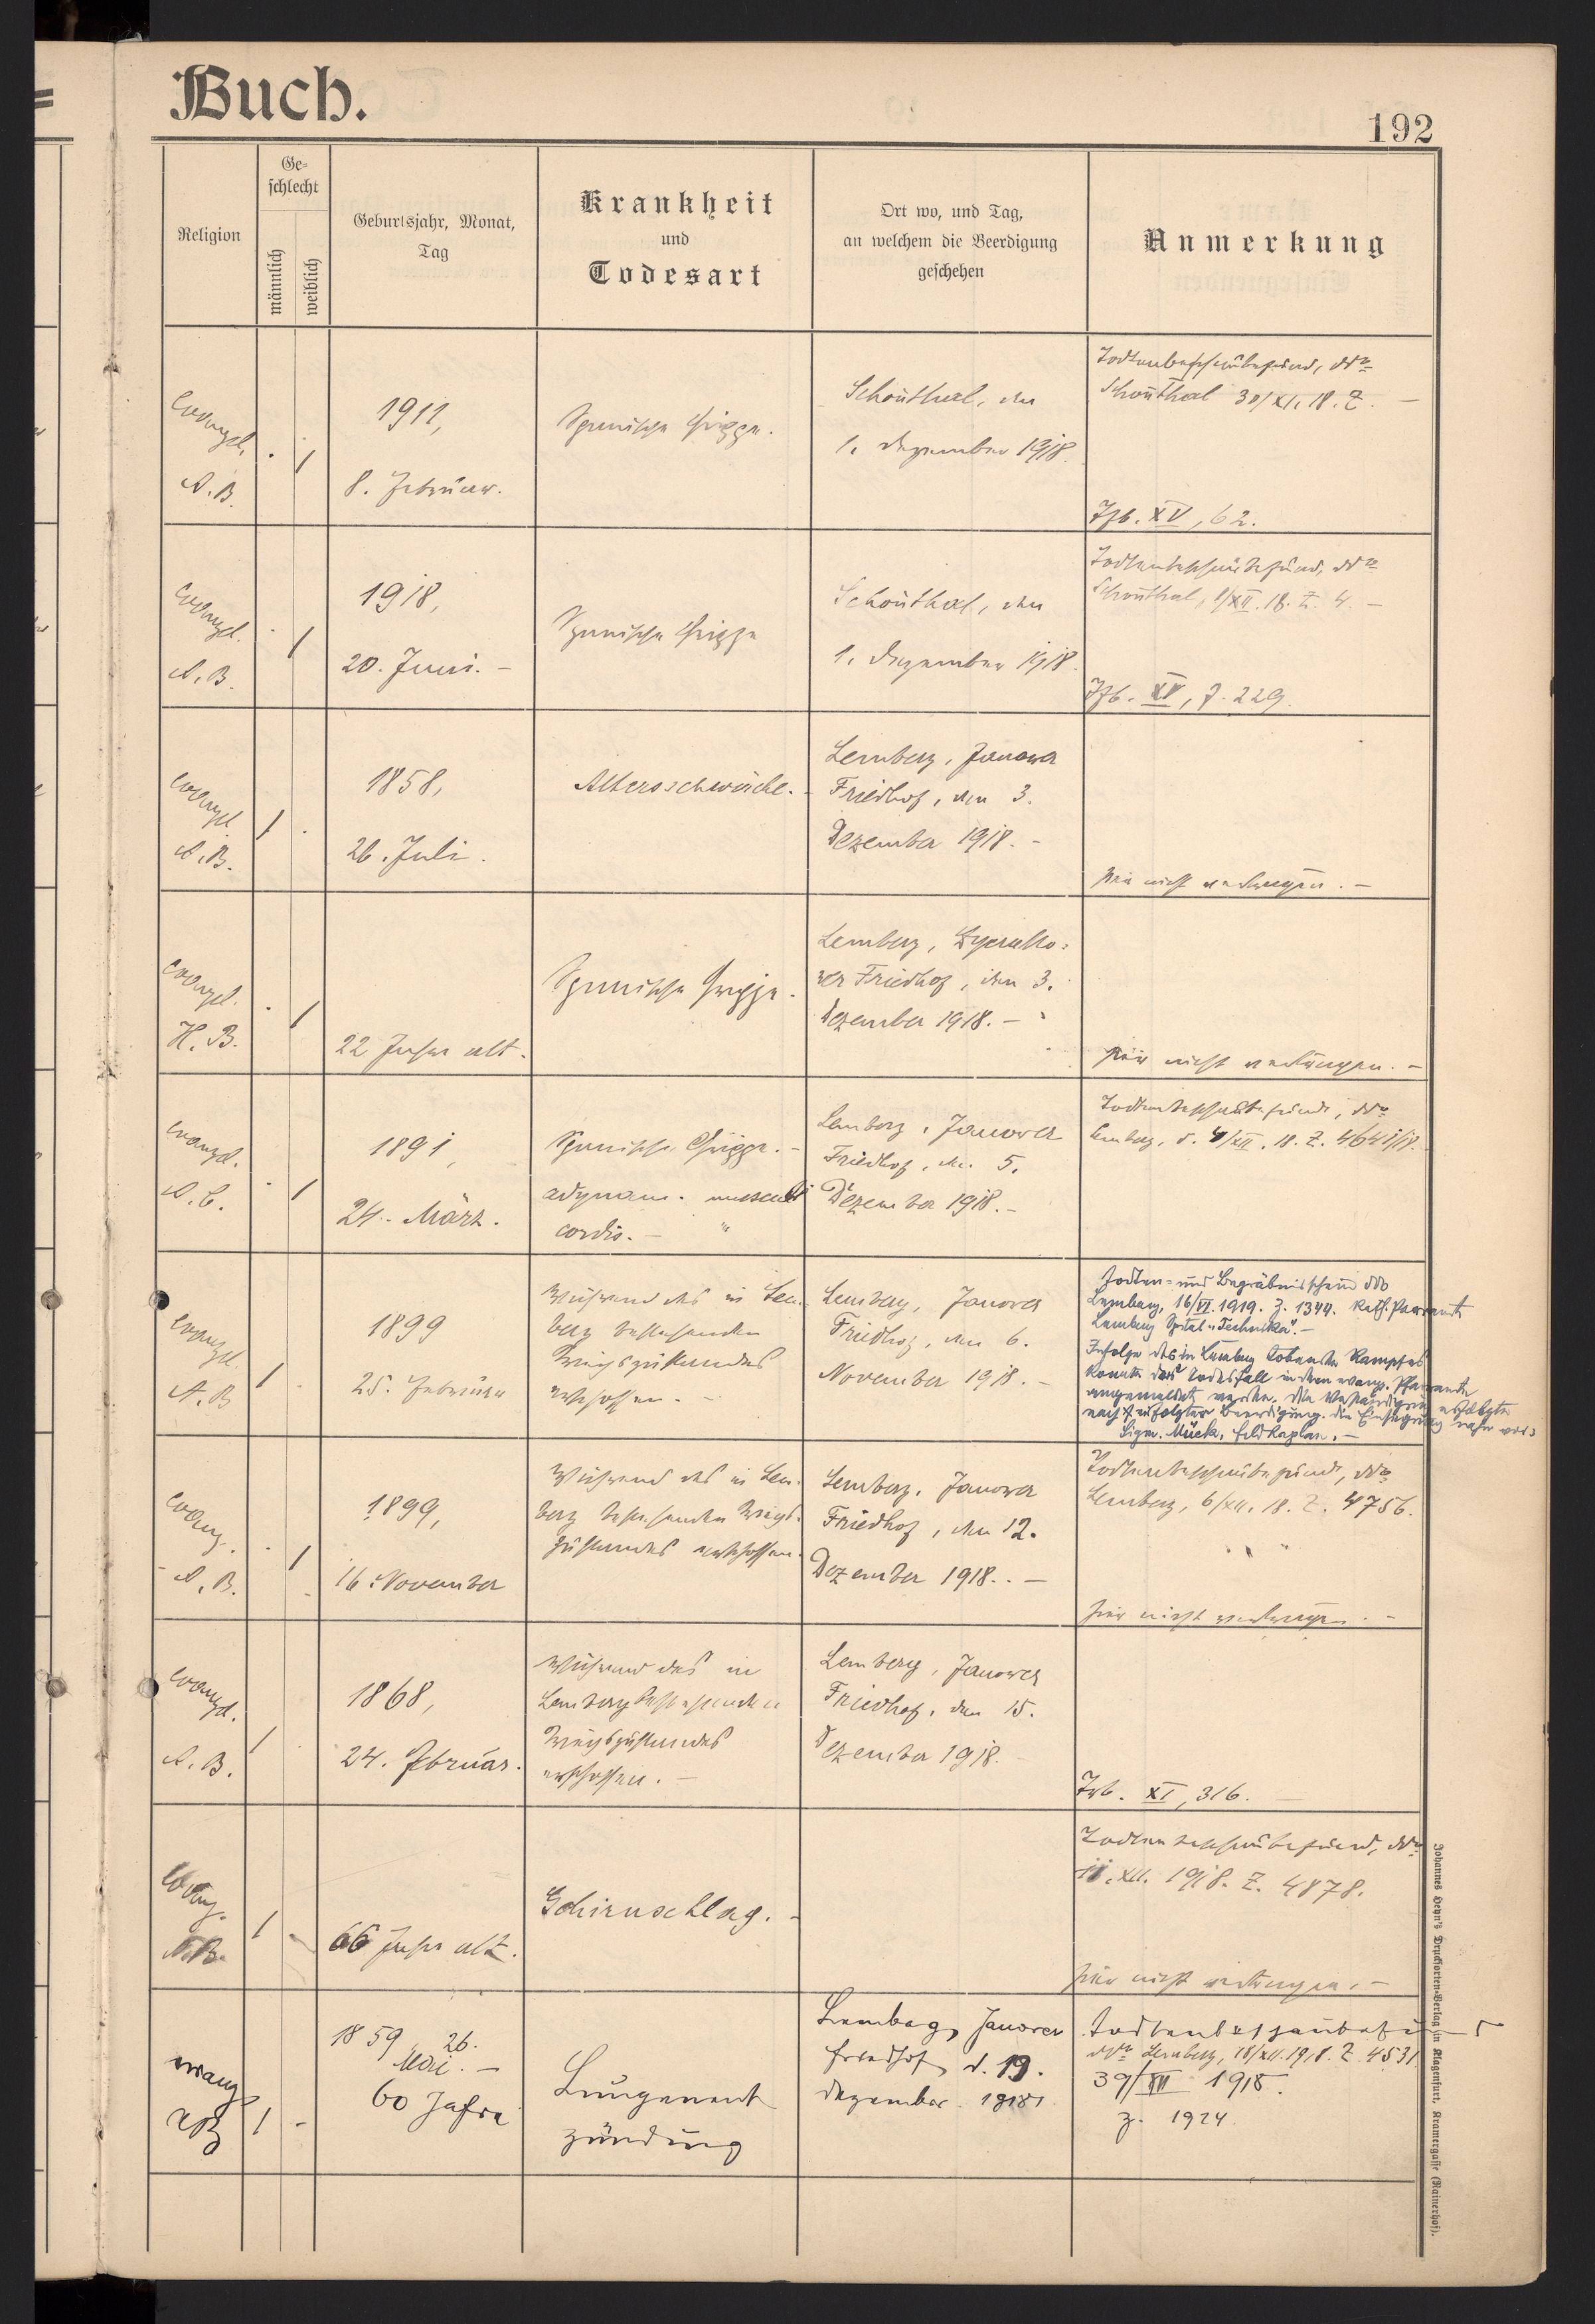 Buch.
192
Religion
Ge-
schlecht
männlich
weiblich
Geburtsjahr, Monat,
Tag
Krankheit
und
Todesart
Ort wo, und Tag,
an welchem die Beerdigung
geschehen
Anmerkung
Evangel.
A. B.
1
1911,
8. Februar.
Spanische Grippe.
Schönthal, den
1. Dezember 1918.
Todtenbeschaubefund, ddo
Schönthal 30/XI. 18. Z. –
Tfb. XV, 62.
Evangel.
A. B.
1
1918,
20. Juni. –
Spanische Grippe
Schönthal, den
1. Dezember 1918.
Todtenbeschaubefund, ddo
Schönthal, 1/XII. 18. Z. 4. –
Tfb. XV, 229.
Evangel.
A. B.
1
1858,
26. Juli.
Altersschwäche. –
Lemberg, Janower
Friedhof, den 3.
Dezember 1918. –
hier nicht
Evangel.
H. B.
1
22 Jahre alt.
Spanische Grippe.
Lemberg, Lyczako-
wer Friedhof, den 3.
Dezember 1918. –
hier nicht
Evangel.
1
1891,
24. März.
Spanische Grippe. –
adynam. musculi
cordis. –
Lemberg, Janower
Friedhof, den 5.
Dezember 1918. –
Todtenbeschaubefund, ddo
Lemberg, d. 4/XII. 18. Z. 4641/18.
Evangel.
A. B
1
1899
25. Februar
Während des in Lem-
berg bestehenden
Kriegszustandes
erschossen. –
Lemberg, Janower
Friedhof, den 6.
November 1918. –
Todten- und Begräbnisschein ddo
Lemberg, 16/VI. 1919. Z. 1344. Kath. Pfarramt
Lemberg Spital "Technika". –
Infolge des in Lemberg tobenden Kampfes
konnte der Todesfall in dem evang. Pfarramte
angemeldet werden. Die Verständigung erfolgte
nach erfolgter Beerdigung. Die Einsegnung nahm vor:
Sigm. Mück, Feldkaplan. –
Evang.
A. B.
1
1899,
16. November
Während des in Lem-
berg bestehenden Kriegs-
zustandes erschossen.
Lemberg, Janower
Friedhof, den 12.
Dezember 1918. –
Todtenbeschaubefund, ddo
Lemberg, 6/XII. 18. Z. 4756.
hier nicht
Evangel.
A. B.
1
1868,
24. Februar.
Während des in
Lemberg bestehenden
Kriegszustandes
erschossen. –
Lemberg, Janower
Friedhof, den 15.
Dezember 1918.
XI, 316. –
Evang.
A. B.
1
66 Jahre alt.
Gehirnschlag. –
Todtenbeschaubefund, ddo
11. XII. 1918. Z. 4878.
hier nicht
evang
AB
1 -
1859, 26.
Mai. –
60 Jahre
Lungenent
zündung
Lemberg, Janower
Friedhof, d. 19.
Dezember 1918
Todtenbeschaubefund
ddo Lemberg, 18/XII. 1918. Z. 4531
XII 1918.
Z. 1924.
Johannes Heyn's Drucksorten-Verlag in Klagenfurt, Kramergasse (Rainerhof).